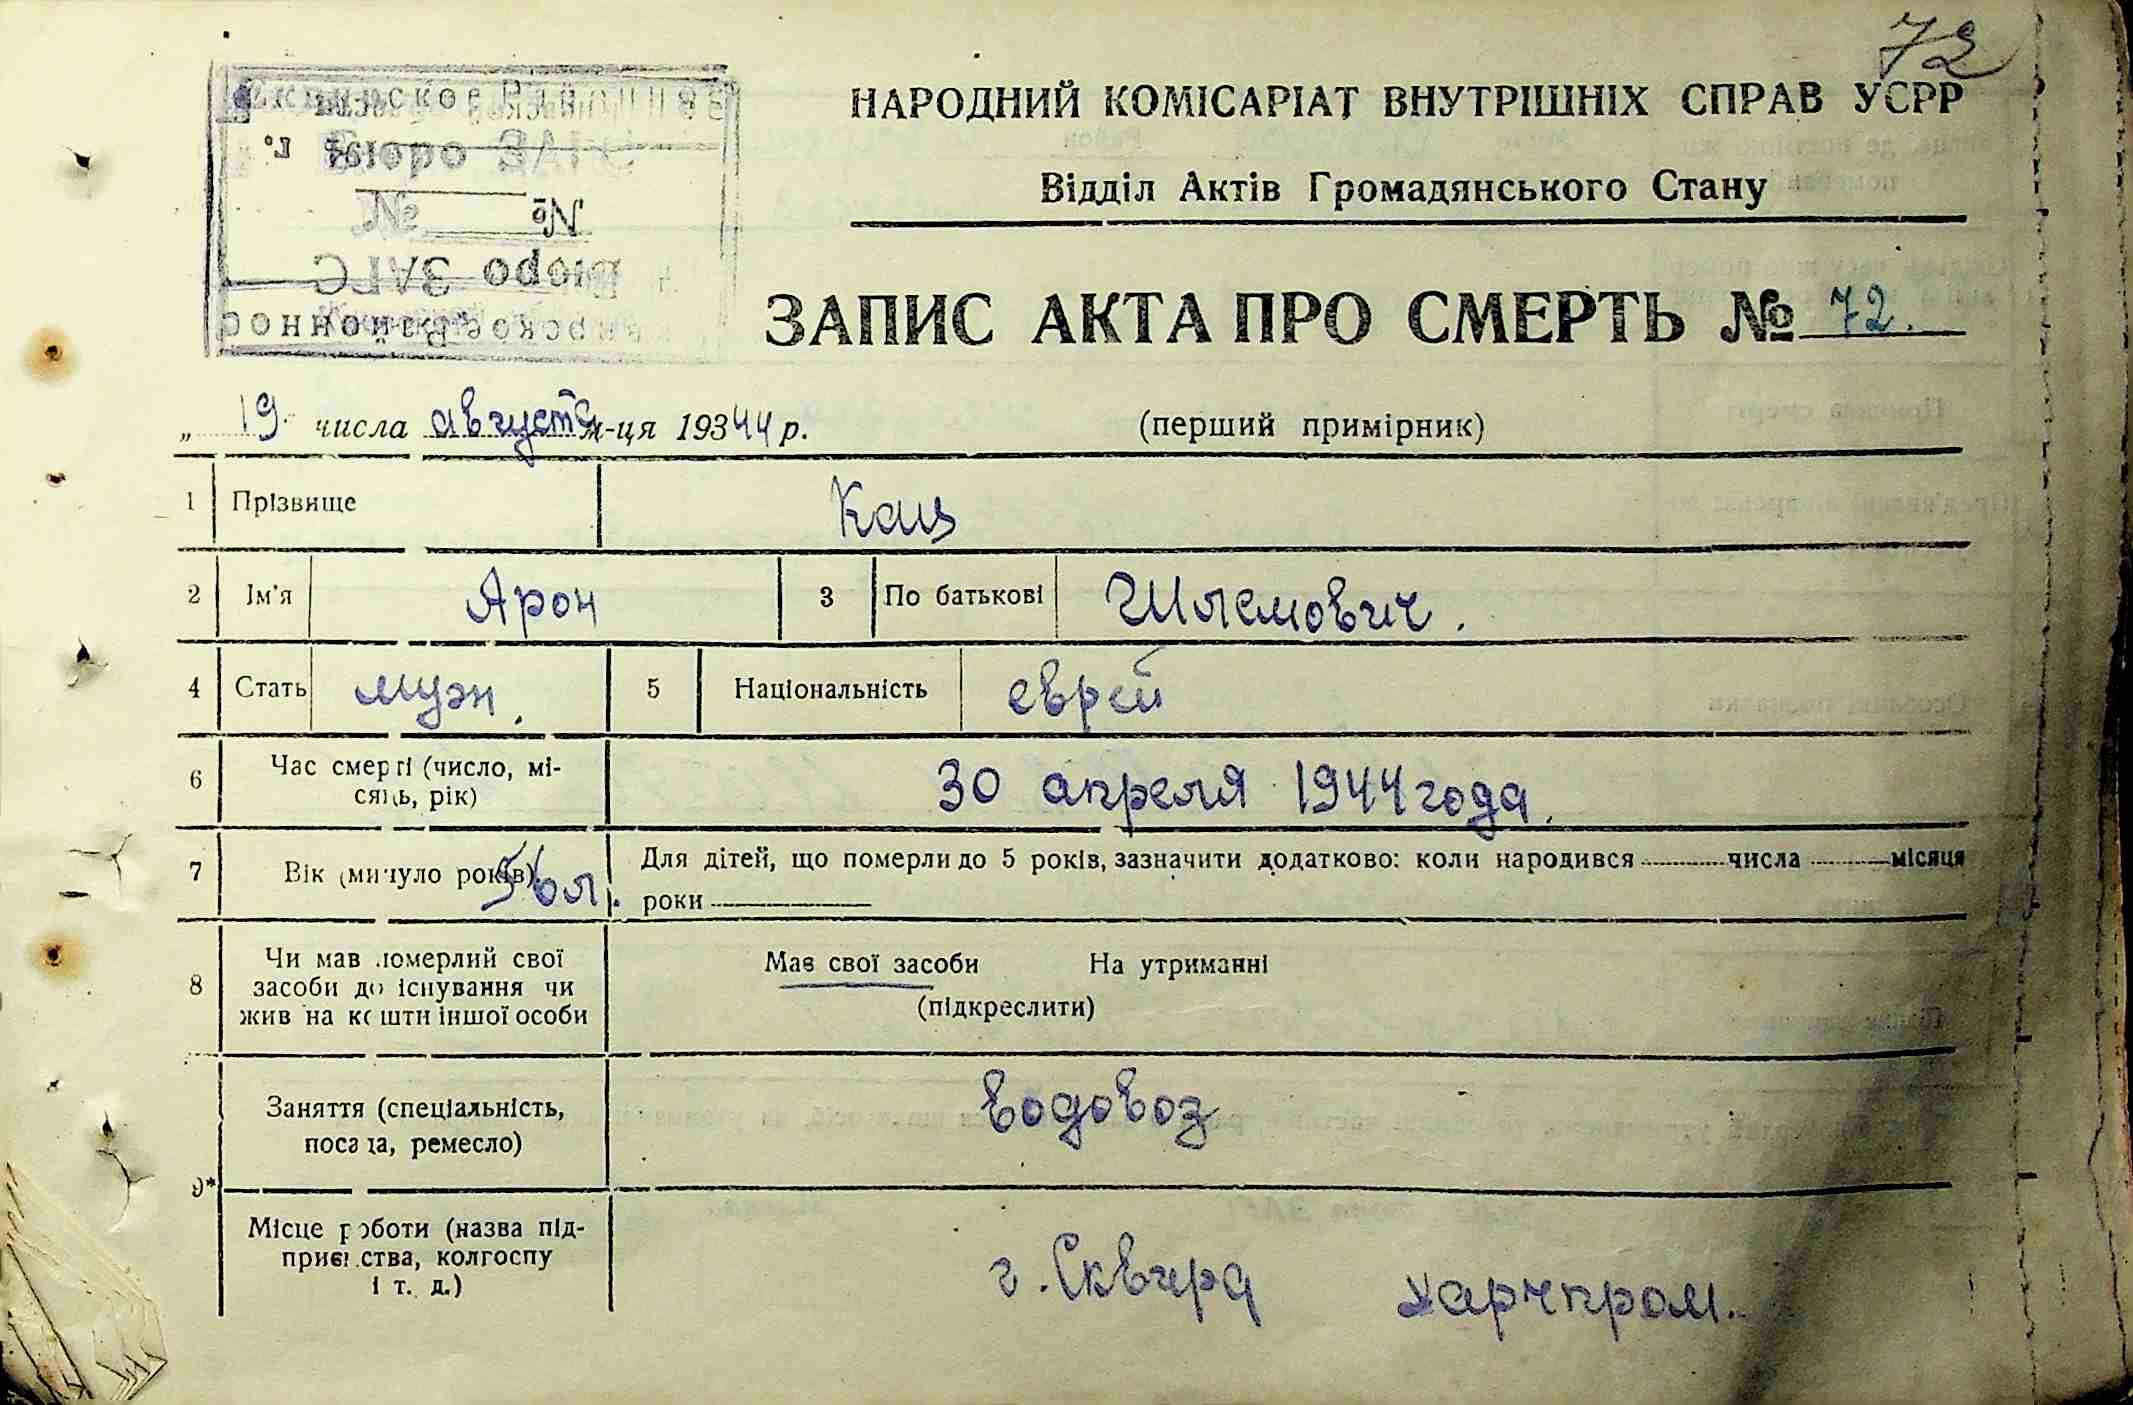 72
НАРОДНИЙ КОМІСАРІАТ ВНУТРІШНІХ СПРАВ УСРР
Відділ Актів Громадянського Стану
Бюро ЗАГС
№ №
Бюро ЗАГС
ЗАПИС АКТА ПРО СМЕРТЬ № 72.
„ 19 числа августа м-ця 19344 р. (перший примірник)
1 Прізвище Кац
2 Ім'я Арон 3 По батькові Шлемович.
4 Стать муж. 5 Національність еврей
6 Час смерті (число, мі-
сяць, рік) 30 апреля 1944 года.
7 Вік (минуло років) 56 л. Для дітей, що померли до 5 років, зазначити додатково: коли народився числа місяця
роки
8 Чи мав померлий свої
засоби до існування чи
жив на кошти іншої особи
Мав свої засоби На утриманні
(підкреслити)
Заняття (спеціальність,
посада, ремесло) водовоз
9*
Місце роботи (назва під-
приємства, колгоспу
і т. д.) г. Сквира Харчпром.